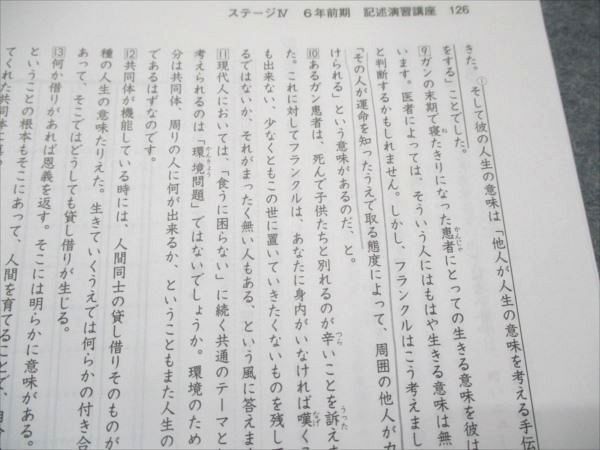 ステージⅣ 6年前期 記述演習講座 126
きた。①そして彼の人生の意味は「他人が人生の意味を考える手伝
をする」ことでした。
⑨ガンの末期で寝たきりになった患者にとっての生きる意味を彼は
います。医者によっては、そういう人にはもはや生きる意味は無
と判断するかもしれません。しかし、フランクルはこう考えまし
「その人が運命を知ったうえで取る態度によって、周囲の他人が力
けられる」という意味があるのだ、と。
⑩あるガン患者は、死んで子供たちと別れるのが辛いことを訴えま
た。これに対してフランクルは、あなたに身内がいなければ嘆くこ
も出来ない、少なくともこの世に置いていきたくないものを残して
るではないか、それがまったく無い人もある、という風に答えま
⑪現代人においては、「食うに困らない」に続く共通のテーマと
考えられるのは「環境問題」ではないでしょうか。環境のため
分は共同体、周りの人に何が出来るか、ということもまた人生の
であるはずなのです。
⑫共同体が機能している時には、人間同士の貸し借りそのものが
種の人生の意味たりえた。生きていくうえでは何らかの付き合
あって、そこではどうしても貸し借りが生じる。
⑬何か借りがあれば恩義を返す。そこには明らかに意味がある。
ということの根本もそこにあって、人間を育てることで、自分
てくれた共同体に